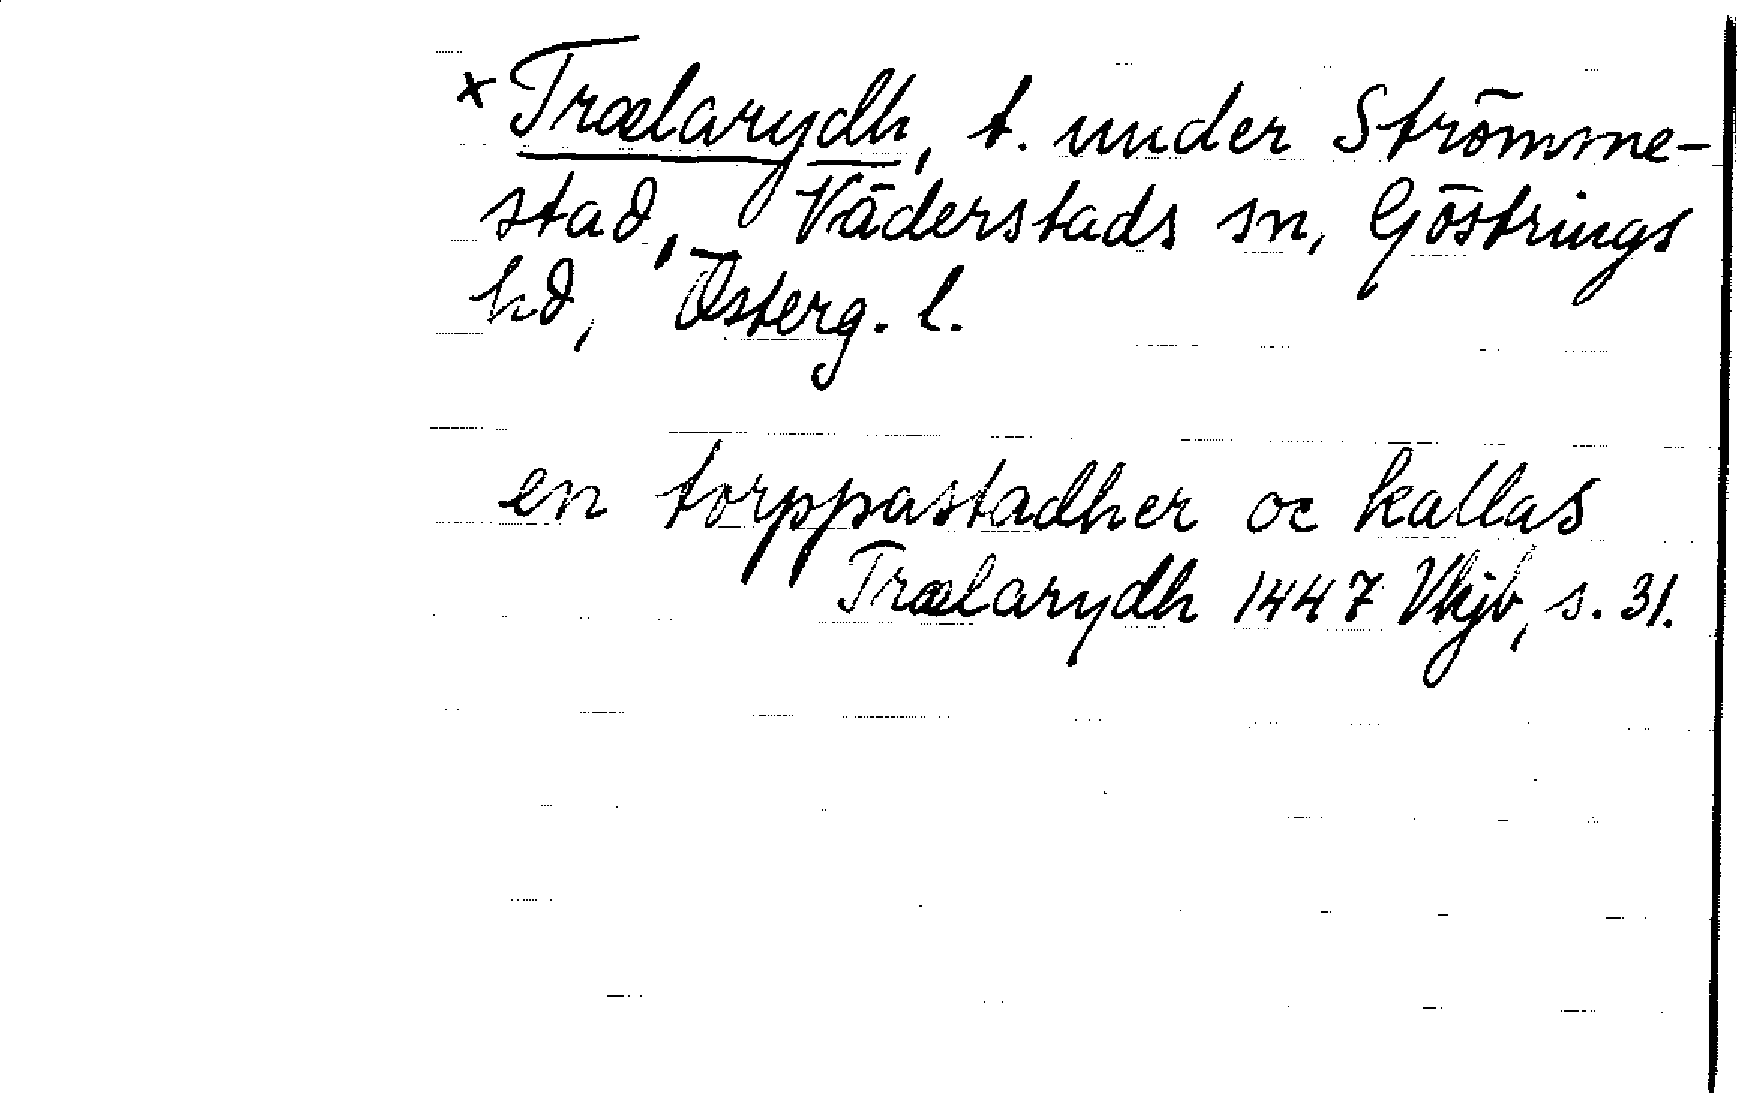 × Trælarydh, t. under Strömme-
stad, Väderstads sn, Göstrings
hd, Österg. l.
en torppastadher oc kallas
Trælarydh 1447 Vkjb, s. 31.